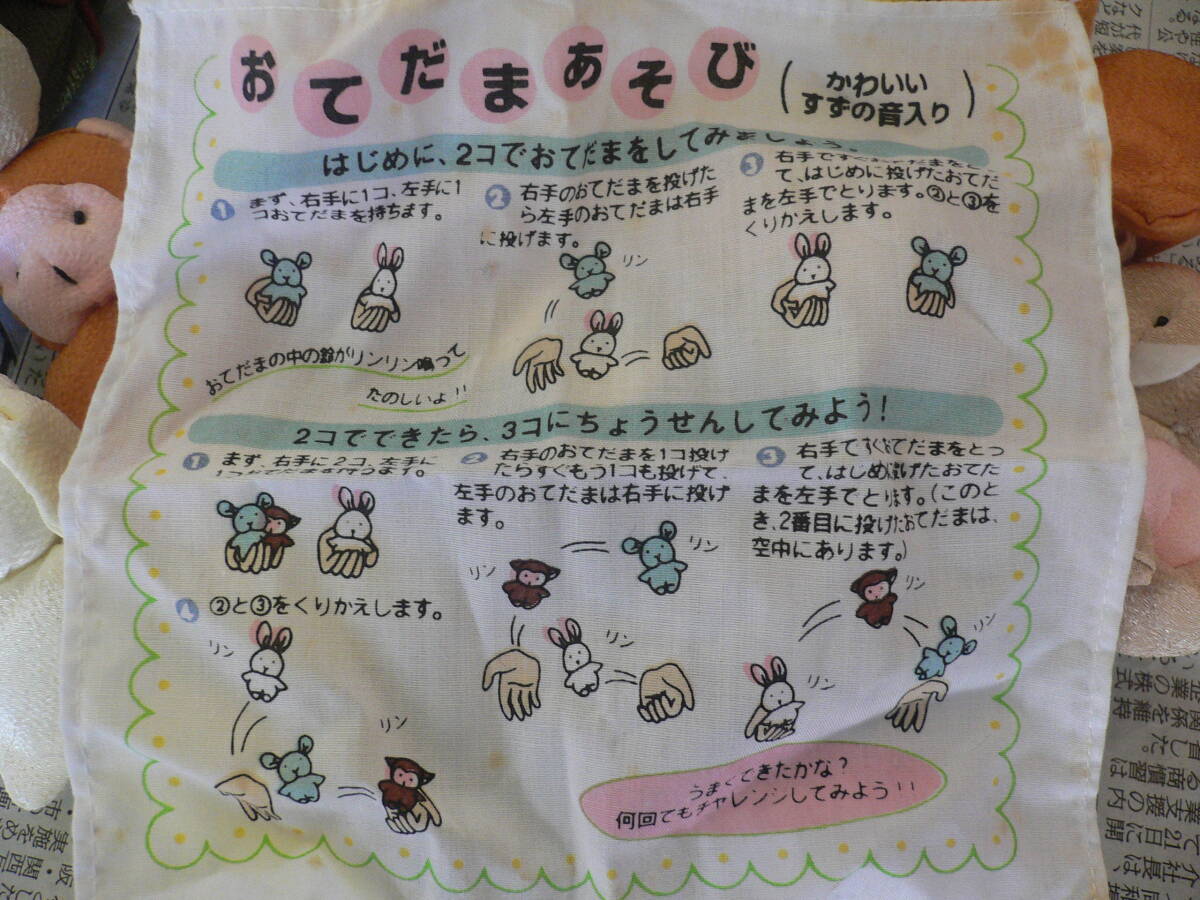 おてだまあそび
(かわいい
すずの音入り)
はじめに、2コでおてだまをしてみましょう。
1 まず、右手に1コ、左手に1
コおてだまを持ちます。
2 右手のおてだまを投げた
ら左手のおてだまは右手
に投げます。
3 右手ですぐおてだまをと
て、はじめに投げたおてだ
まを左手でとります。②と③を
くりかえします。
リン
おてだまの中の鈴がリンリン鳴って
たのしいよ!!
2コでできたら、3コにちょうせんしてみよう!
1 まず、右手に2コ、左手に
2 右手のおてだまを1コ投げ
たらすぐもう1コも投げて、
左手のおてだまは右手に投げ
ます。
3 右手ですぐおてだまをとっ
て、はじめ投げたおてた
まを左手でとります。(このと
き、2番目に投げたおてだまは、
空中にあります。)
リン
リン
リン
リン
リン
リン
4 ②と③をくりかえします。
リン
リン
うまくできたかな?
何回でもチャレンジしてみよう!!